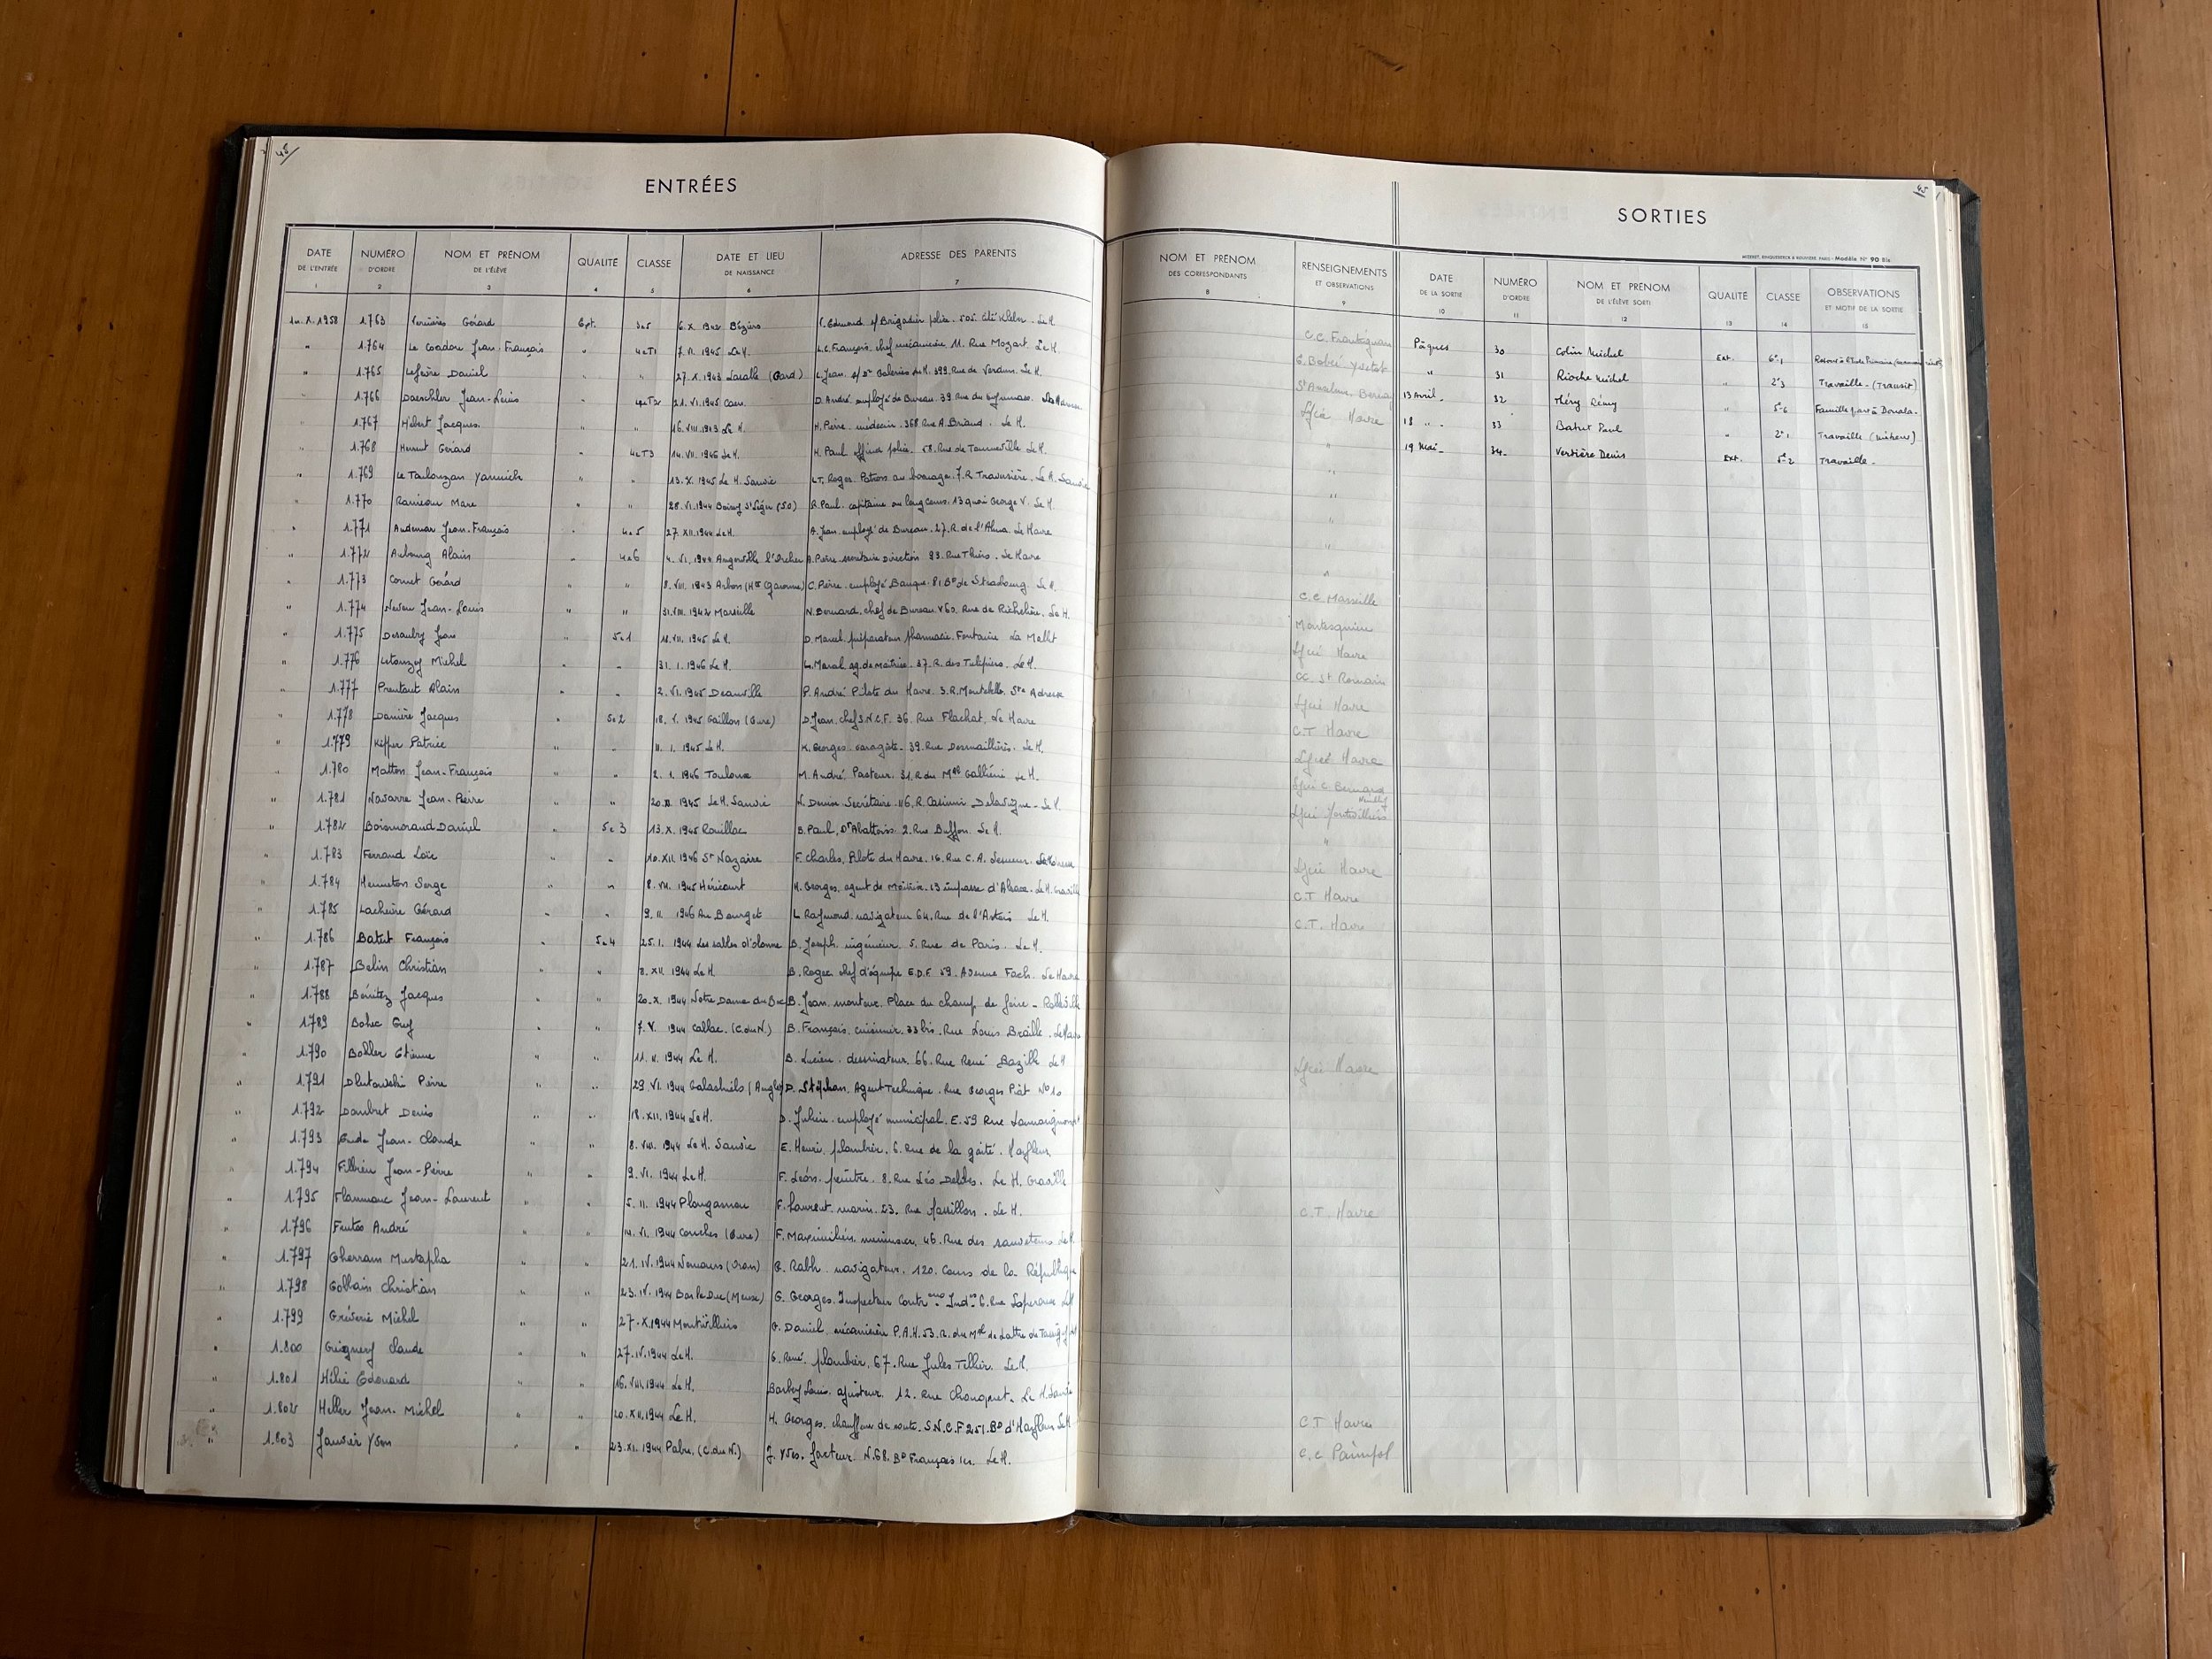 45
ENTRÉES
DATE DE L'ENTRÉE 1 NUMÉRO D'ORDRE 2 NOM ET PRÉNOM DE L'ÉLÈVE 3 QUALITÉ 4 CLASSE 5 DATE ET LIEU DE NAISSANCE 6 ADRESSE DES PARENTS 7
1er.X.1958 1.763 Gérard Ept. 3e5 6.X.1942 Béziers V. Edmond s/Brigadier police. 505. Cité Kléber. Le H.
" 1.764 Le Coadou Jean-François " 4eT1 7.VI.1945 Le H. L.C. François. chef mécanicien. 11. Rue Mozart Le H.
" 1.765 Lefèvre Daniel " " 27.1.1943 Lasalle (Gard) L. Jean. s/Dr Galeries Le H. 399. Rue de Verdun. Le H.
" 1.766 Daeschler Jean-Louis " 4eT2 21.VI.1945 Caen. D. André employé de Bureau. 39 Rue du Gymnase.
" 1.767 Hébert Jacques " " 16.VIII.1943 Le H. H. Pierre. médecin. 368 Rue A. Briand. Le H.
" 1.768 Gérard " 4eT3 14.VII.1946 Le H. H. Paul police. 58. Rue de Tourneville Le H.
" 1.769 Le Toulouzan Yannick " " 13.X.1945 Le H. Sanvic L.T. Roger. Patron au bornage. 7.R Traversière. Le H. Sanvic
" 1.770 Rameau Marc " 28.VI.1944 Boissy St Léger (S.O) R. Paul. capitaine au long cours. 13 quai George V. Le H.
" 1.771 Audemar Jean-François " 4e5 27.XII.1944 Le H. A. Jean employé de Bureau. 27.R. de l'Alma. Le Havre
" 1.772 Aubourg Alain " 4e6 4.VI.1944 Angerville l'Orcher A. Pierre secrétaire Direction 93. Rue Thiers. Le Havre
" 1.773 Cornet Gérard " " 8.VIII.1943 Arbon (Hte Garonne) C. Pierre. employé Banque. 81 Bd de Strasbourg Le H.
" 1.774 Neveu Jean-Louis " " 31.VIII.1942 Marseille N. Bernard. chef de Bureau. V60. Rue de Richelieu. Le H.
" 1.775 Desaulty Jean " 5e1 18.VII.1945 Le H. D. Marcel. préparateur pharmacie. Fontaine La Mallet
" 1.776 Letouzey Michel " " 31.1.1946 Le H. L. Marcel. ag. de maîtrise. 37.R. des Tulipiers. Le H.
" 1.777 Prentout Alain " " 2.VI.1945 Deauville P. André Pilote du Havre. 3.R. Ste Adresse
" 1.778 Danière Jacques " 5e2 18.V.1945 Gaillon (Eure) D. Jean. chef S.N.C.F. 36. Rue Flachat. Le Havre
" 1.779 Kiffer Patrice " " 11.1.1945 Le H. K. Georges. garagiste. 39. Rue Desmaillières. Le H.
" 1.780 Matton Jean-François " " 2.1.1946 Toulouse M. André. Pasteur. 31.R du Mal Galliéni Le H.
" 1.781 Navarre Jean-Pierre " " 1945 Le H. Sanvic N. Denise Secrétaire. 116.R. Casimir Delavigne. Le H.
" 1.782 Boismorand Daniel " 5e3 13.X.1945 Rouillac B. Paul, Dr Abattoirs. 2. Rue Buffon. Le H.
" 1.783 Ferrand Loïc " " 10.XII.1946 St Nazaire F. Charles. Pilote du Havre. 16. Rue C.A. Lesueur.
" 1.784 Henneton Serge " " 8.VII.1945 Héricourt H. Georges. agent de Maîtrise. 13 impasse d'Alsace. Le H. Graville
" 1.785 Lachèvre Gérard " " 9.II.1946 Au Bourget L. Raymond. navigateur 64. Rue de l'Artois Le H.
" 1.786 Batut François " 5e4 25.1.1944 Les sables d'olonne B. Joseph ingénieur. 5. Rue de Paris. Le H.
" 1.787 Belin Christian " 8.XII.1944 Le H. B. Roger chef d'équipe E.D.F. 59. Avenue Foch. Le Havre
" 1.788 Bénitez Jacques " " 20.X.1944 Notre Dame du Bec B. Jean. monteur. Place du champ de foire - Rolleville
" 1.789 Bohec Guy " " 7.V.1944 Callac. (C.du N.) B. François. cuisinier. 33 bis. Rue Louis Braille. Le Havre
1.790 Bohler Etienne " " 11.V.1944 Le H. B. Lucien. dessinateur. 66. Rue René Bazille Le H
" 1.791 Dlutowski Pierre " " 29.VI.1944 Galashiels (Angle) D. Stéphan. Agent Technique. Rue Georges Piat No 10
" 1.792 Daubret Denis " " 18.XII.1944 Le H. D. Julien. employé municipal. E.59 Rue
" 1.793 Eude Jean-Claude " " 8.VIII.1944 Le H. Sanvic E. Henri. plombier. 6. Rue de la gaité. Harfleur
" 1.794 Jean-Pierre " " 9.VI.1944 Le H. F. Léon. peintre. 8. Rue Léo Delibes. Le H. Graville
" 1.795 Flammanc Jean-Laurent " " 5.II.1944 Plougasnou F. Laurent. marin. 23. Rue Massillon. Le H.
" 1.796 André VI.1944 Conches (Eure) F. Maximilien menuisier. 46. Rue des sauveteurs Le H.
" 1.797 Gherram Mustapha " " 21.IV.1944 Nemours (Oran) G. Rabh. navigateur. 120. Cours de la République
" 1.798 Gobbain Christian " " 23.IV.1944 Bar le Duc (Meuse) G. Georges. Inspecteur 6. Rue Laperouse Le H
" 1.799 Gréverie Michel " " 27.X.1944 Montivilliers G. Daniel. mécanicien P.A.H. 53. R. du Mal de Lattre de Tassigny
" 1.800 Guignery Claude " " 27.IV.1944 Le H. G. René. plombier. 67. Rue Jules Tellier. Le H.
" 1.801 Hélie Edouard " " 16.VIII.1944 Le H. Barbey Louis. ajusteur. 12. Rue Le H. Sanvic
" 1.802 Heller Jean-Michel " " 20.XII.1944 Le H. H. Georges. chauffeur de route. S.N.C.F 251. Bd d'Harfleur Le H
" 1.803 Janvier Yvon " " 23.XI.1944 (C.du N.) J. Yves. facteur. N.68. Bd François 1er. Le H.
45
SORTIES
Modèle N° 90 Bis
NOM ET PRÉNOM DES CORRESPONDANTS 8 RENSEIGNEMENTS ET OBSERVATIONS 9 DATE DE LA SORTIE 10 NUMÉRO D'ORDRE 11 NOM ET PRÉNOM DE L'ÉLÈVE SORTI 12 QUALITÉ 13 CLASSE 14 OBSERVATIONS ET MOTIF DE LA SORTIE 15
C.C. Frontignan Pâques 30 Colin Michel Ext. 6e1
Yvetot " 31 Rioche Michel " 2e3 Travaille. (Transit)
St Anselme. Bernay 13 Avril. 32 Théry Rémy " 5e6 Famille part à Douala.
Lycée Havre 18 " 33 Batut Paul " 2e1 Travaille
" 19 Mai. 34 Vertière Denis Ext. 5e2 Travaille.
"
"
"
"
"
C.C. Marseille
Montesquieu
Lycée Havre
CC. St Romain
Lycée Havre
C.T Havre
Lycée Havre
Lycée C. Bernard
Lycée Montivilliers
"
Lycée Havre
C.T Havre
C.T. Havre
Lycée Havre
C.T. Havre
C.T Havre
C.C Paimpol